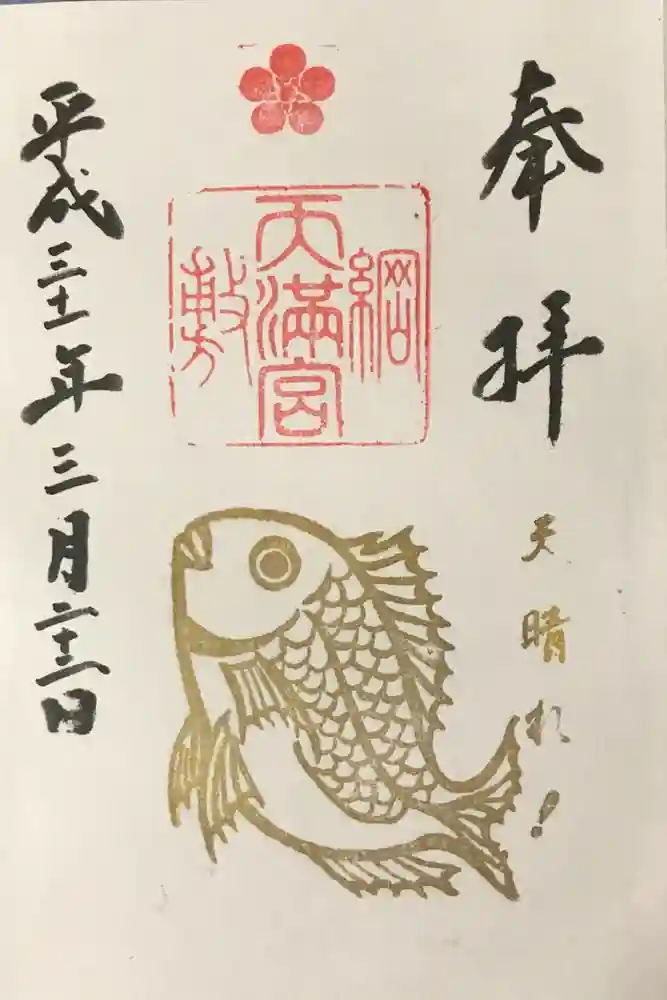 奉拝
天晴れ!
綱
天満宮
敷
平成三十一年三月二十三日